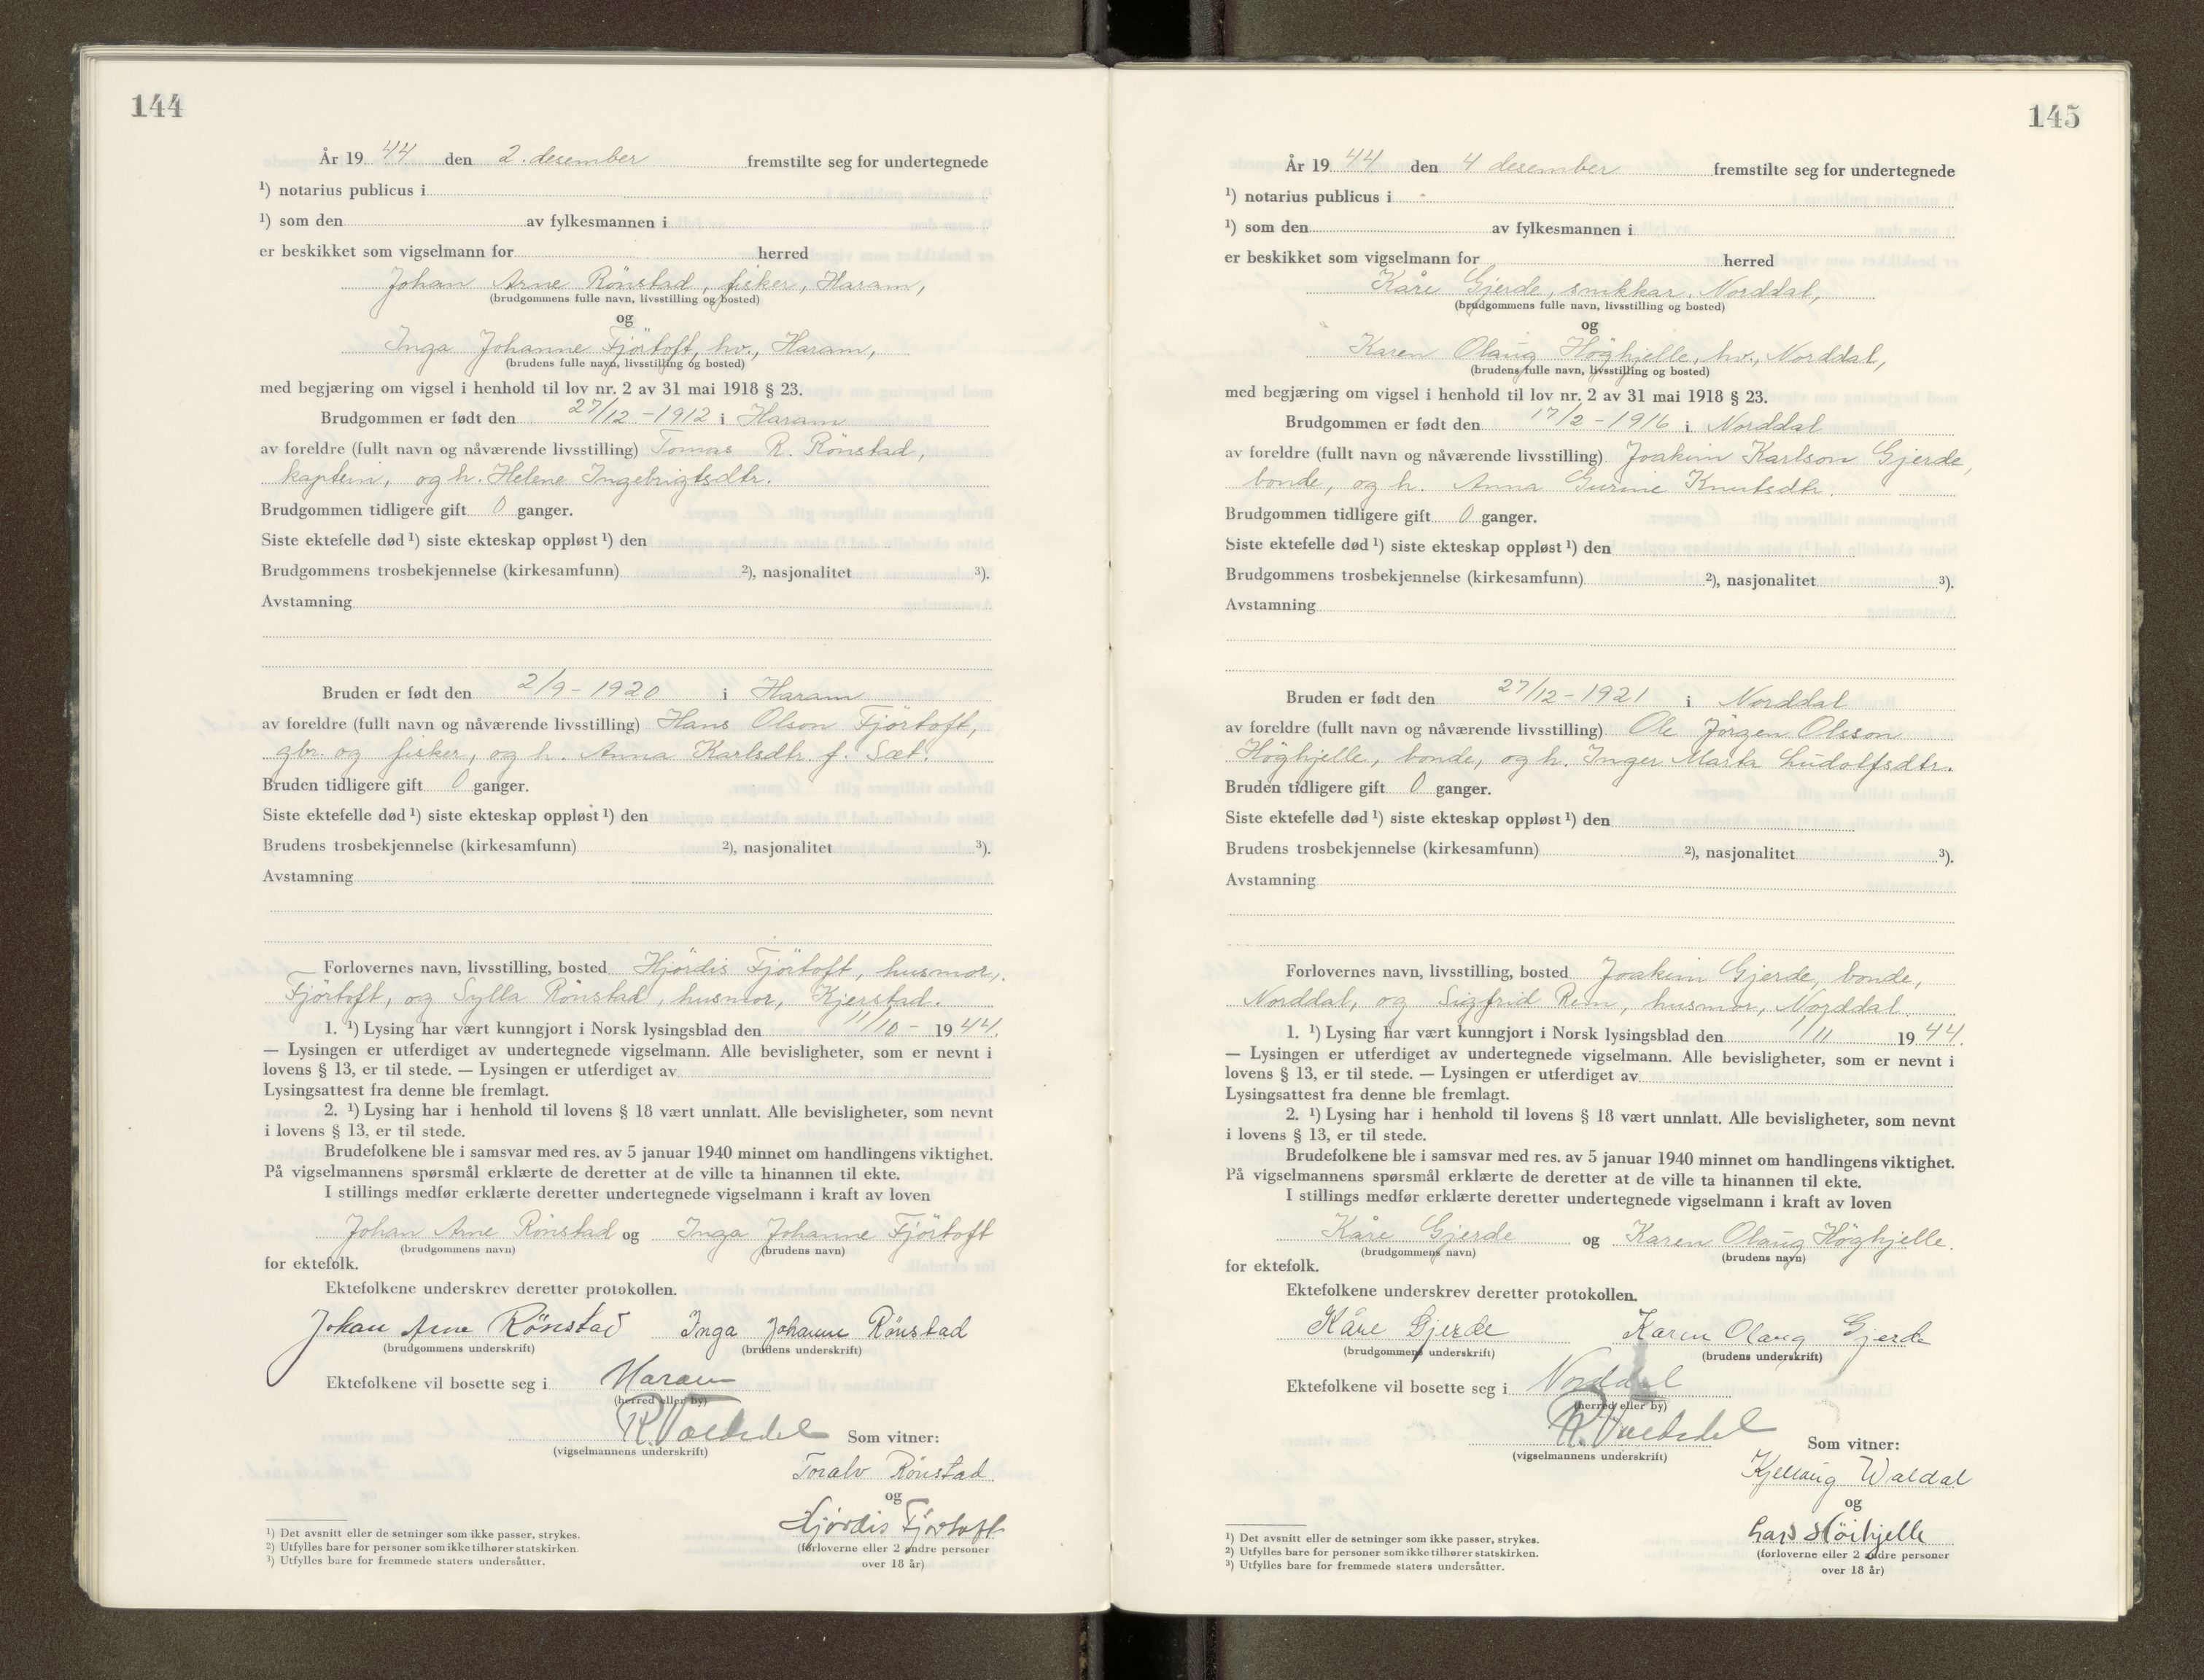 144
År 19 44 den 2. desember fremstilte seg for undertegnede
¹) notarius publicus i
¹) som den av fylkesmannen i
er beskikket som vigselmann for herred
Johan Arne Rönstad, fisker, Haram,
(brudgommens fulle navn, livsstilling og bosted)
og
Inga Johanne Fjörtoft, hv., Haram,
(brudens fulle navn, livsstilling og bosted)
med begjæring om vigsel i henhold til lov nr. 2 av 31 mai 1918 § 23.
Brudgommen er født den 27/12 - 1912 i Haram
av foreldre (fullt navn og nåværende livsstilling) Tomas R. Rönstad,
kaptein, og h. Helene Ingebrigtsdtr.
Brudgommen tidligere gift 0 ganger.
Siste ektefelle død ¹) siste ekteskap oppløst ¹) den
Brudgommens trosbekjennelse (kirkesamfunn) ²), nasjonalitet ³).
Avstamning
Bruden er født den 2/9 - 1920 i Haram
av foreldre (fullt navn og nåværende livsstilling) Hans Olson Fjörtoft,
gbr. og fisker, og h. Anna Karlsdtr. f. Sæt.
Bruden tidligere gift 0 ganger.
Siste ektefelle død ¹) siste ekteskap oppløst ¹) den
Brudens trosbekjennelse (kirkesamfunn) ²), nasjonalitet ³).
Avstamning
Forlovernes navn, livsstilling, bosted Hjördis Fjörtoft, husmor,
Fjörtoft, og Sylla Rönstad, husmor, Kjerstad.
1. ¹) Lysing har vært kunngjort i Norsk lysingsblad den 11/10 - 19 44.
— Lysingen er utferdiget av undertegnede vigselmann. Alle bevisligheter, som er nevnt i
lovens § 13, er til stede. — Lysingen er utferdiget av
Lysingsattest fra denne ble fremlagt.
2. ¹) Lysing har i henhold til lovens § 18 vært unnlatt. Alle bevisligheter, som nevnt
i lovens § 13, er til stede.
Brudefolkene ble i samsvar med res. av 5 januar 1940 minnet om handlingens viktighet.
På vigselmannens spørsmål erklærte de deretter at de ville ta hinannen til ekte.
I stillings medfør erklærte deretter undertegnede vigselmann i kraft av loven
Johan Arne Rönstad og Inga Johanne Fjörtoft
(brudgommens navn) (brudens navn)
for ektefolk.
Ektefolkene underskrev deretter protokollen.
Johan Arne Rönstad Inga Johanne Rönstad
(brudgommens underskrift) (brudens underskrift)
Ektefolkene vil bosette seg i Haram
(herred eller by)
(vigselmannens underskrift) Som vitner:
Toralv Rönstad
og
Hjördis Fjörtoft
(forloverne eller 2 andre personer
over 18 år)
¹) Det avsnitt eller de setninger som ikke passer, strykes.
²) Utfylles bare for personer som ikke tilhører statskirken.
³) Utfylles bare for fremmede staters undersåtter.
145
År 19 44 den 4 desember fremstilte seg for undertegnede
¹) notarius publicus i
¹) som den av fylkesmannen i
er beskikket som vigselmann for herred
Kåre Gjerde, snikkar, Norddal,
(brudgommens fulle navn, livsstilling og bosted)
og
Karen Olaug Höghjelle, hv., Norddal,
(brudens fulle navn, livsstilling og bosted)
med begjæring om vigsel i henhold til lov nr. 2 av 31 mai 1918 § 23.
Brudgommen er født den 17/2 - 1916 i Norddal
av foreldre (fullt navn og nåværende livsstilling) Joakim Karlson Gjerde,
bonde, og h. Anna Gurine Knutsdtr.
Brudgommen tidligere gift 0 ganger.
Siste ektefelle død ¹) siste ekteskap oppløst ¹) den
Brudgommens trosbekjennelse (kirkesamfunn) ²), nasjonalitet ³).
Avstamning
Bruden er født den 27/12 - 1921 i Norddal
av foreldre (fullt navn og nåværende livsstilling) Ole Jörgen Olsson
Höghjelle, bonde, og h. Inger Marta Ludolfsdtr.
Bruden tidligere gift 0 ganger.
Siste ektefelle død ¹) siste ekteskap oppløst ¹) den
Brudens trosbekjennelse (kirkesamfunn) ²), nasjonalitet ³).
Avstamning
Forlovernes navn, livsstilling, bosted Joakim Gjerde, bonde,
Norddal, og Sigfrid Rem, husmor, Norddal.
1. ¹) Lysing har vært kunngjort i Norsk lysingsblad den 1/11 19 44.
— Lysingen er utferdiget av undertegnede vigselmann. Alle bevisligheter, som er nevnt i
lovens § 13, er til stede. — Lysingen er utferdiget av
Lysingsattest fra denne ble fremlagt.
2. ¹) Lysing har i henhold til lovens § 18 vært unnlatt. Alle bevisligheter, som nevnt
i lovens § 13, er til stede.
Brudefolkene ble i samsvar med res. av 5 januar 1940 minnet om handlingens viktighet.
På vigselmannens spørsmål erklærte de deretter at de ville ta hinannen til ekte.
I stillings medfør erklærte deretter undertegnede vigselmann i kraft av loven
Kåre Gjerde og Karen Olaug Höghjelle.
(brudgommens navn) (brudens navn)
for ektefolk.
Ektefolkene underskrev deretter protokollen.
Kåre Gjerde Karen Olaug Gjerde
(brudgommens underskrift) (brudens underskrift)
Ektefolkene vil bosette seg i Norddal
(herred eller by)
(vigselmannens underskrift) Som vitner:
Kjellaug Waldal
og
Lars Höihjelle
(forloverne eller 2 andre personer
over 18 år)
¹) Det avsnitt eller de setninger som ikke passer, strykes.
²) Utfylles bare for personer som ikke tilhører statskirken.
³) Utfylles bare for fremmede staters undersåtter.